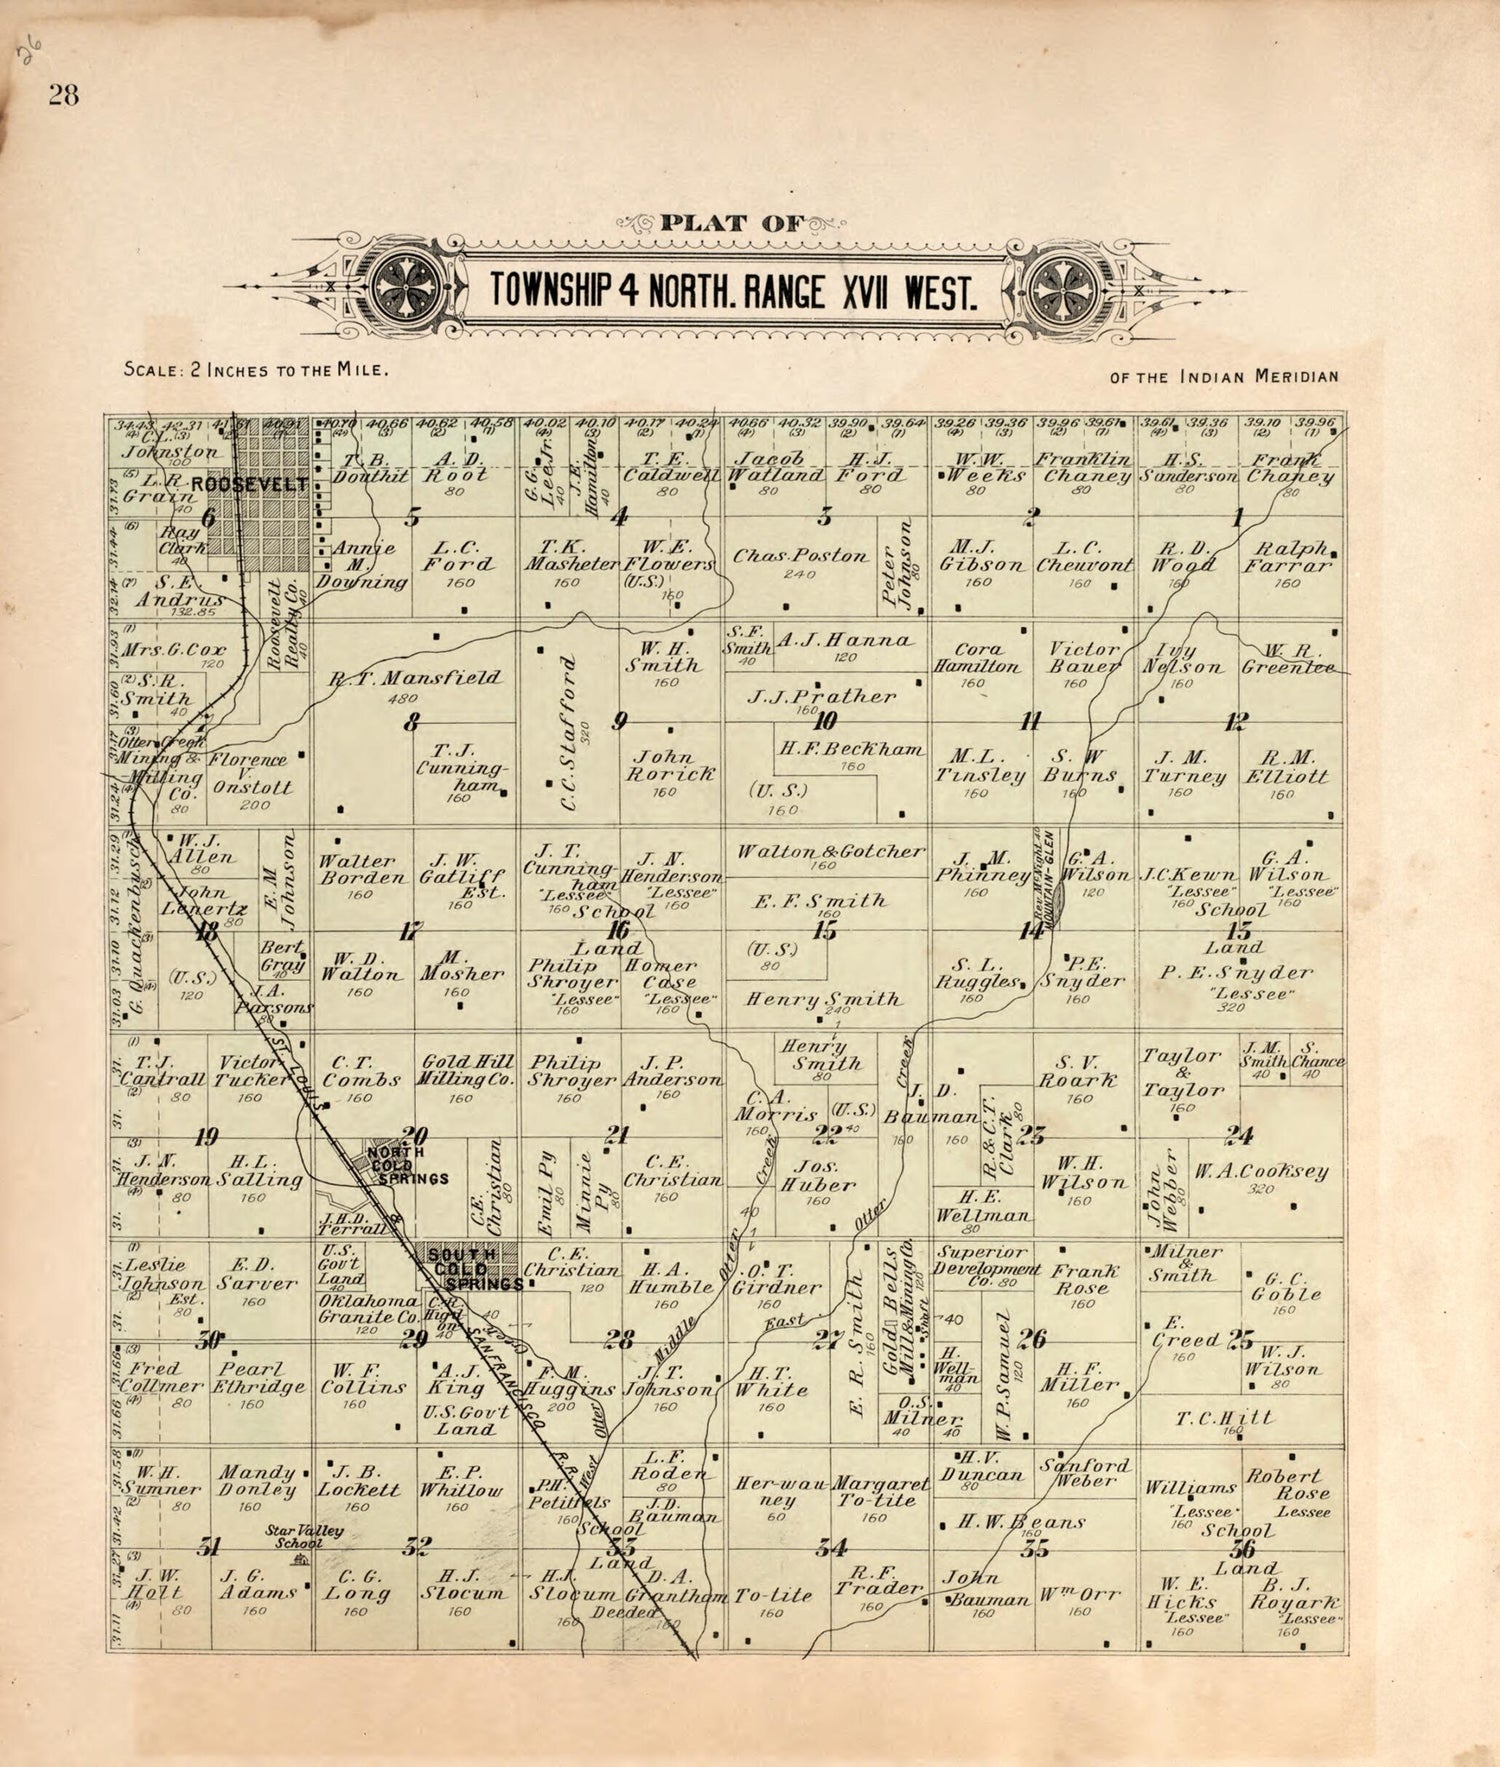 26
28
PLAT OF
TOWNSHIP 4 NORTH. RANGE XVII WEST.
SCALE: 2 INCHES TO THE MILE.
OF THE INDIAN MERIDIAN
34.43 42.31 40.70 40.66 40.62 40.58 40.02 40.10 40.17 40.24 40.66 40.32 39.90 39.64 39.26 39.36 39.96 39.61 39.61 39.36 39.10 39.96
C.L.
Johnston
100
L.R.
Grain
40
ROOSEVELT
6
Ray
Clark
40
S.E.
Andrus
132.85
Roosevelt
Realty Co.
40
T.B.
Douthit
A.D.
Root
80
5
Annie
M.
Downing
L.C.
Ford
160
G.G.
Lee Jr.
40
J.E.
Hamilton
40
T.E.
Caldwell
80
4
T.K.
Masheter
160
W.E.
Flowers
(U.S.)
160
Jacob
Watland
80
H.J.
Ford
80
3
Chas. Poston
240
Peter
Johnson
80
W.W.
Weeks
80
Franklin
Chaney
80
2
M.J.
Gibson
160
L.C.
Cheuvont
160
H.S.
Sanderson
80
Frank
Chaney
80
1
R.D.
Wood
160
Ralph
Farrar
160
Mrs. G. Cox
120
S.R.
Smith
40
Otter Creek
Mining &
Milling
Co.
80
Florence
V.
Onstott
200
R.T. Mansfield
480
8
T.J.
Cunning-
ham
160
C.C. Stafford
320
W.H.
Smith
160
9
John
Rorick
160
S.F.
Smith
40
A.J. Hanna
120
J.J. Prather
160
10
H.F. Beckham
160
(U.S.)
160
Cora
Hamilton
160
Victor
Bauer
160
11
M.L.
Tinsley
160
S. W
Burns
160
Ivy
Nelson
160
W.R.
Greenlee
12
J.M.
Turney
160
R.M.
Elliott
160
G. Quackenbusch
W.J.
Allen
80
John
Lenertz
80
E.M
Johnson
18
(U.S.)
120
Bert
Gray
40
J.A.
Parsons
80
Walter
Borden
160
J.W.
Gatliff
Est.
160
17
W.D.
Walton
160
M.
Mosher
160
J.T.
Cunning-
ham
"Lessee"
160
J.N.
Henderson
"Lessee"
160
School
16
Land
Philip
Shroyer
"Lessee"
160
Homer
Case
"Lessee"
160
Walton & Gotcher
160
E.F. Smith
160
15
(U.S.)
80
Henry Smith
240
J. M.
Phinney
160
MOUNTAIN-GLEN
G.A.
Wilson
120
14
S.L.
Ruggles
160
P.E.
Snyder
160
J.C. Kewn
"Lessee"
160
G.A.
Wilson
"Lessee"
160
School
13
Land
P.E. Snyder
"Lessee"
320
T.J.
Cantrall
80
Victor
Tucker
160
19
J.N.
Henderson
80
H.L.
Salling
160
ST. LOUIS
C.T.
Combs
160
Gold Hill
Milling Co.
160
20
NORTH
COLD
SPRINGS
J.H.D.
Terrall
&
C.E.
Christian
80
Philip
Shroyer
160
J.P.
Anderson
160
21
Emil Py
80
Minnie
Py
80
C.E.
Christian
160
Henry
Smith
80
C.A.
Morris
160
(U.S.)
40
22
Jos.
Huber
160
40
Creek
Otter
Creek
J. D.
Bauman
160 160
R. & C.T.
Clark
80
23
H.E.
Wellman
80
S.V.
Roark
160
W.H.
Wilson
160
Taylor
&
Taylor
160
J.M.
Smith
40
S.
Chance
40
24
John
Webber
80
W.A. Cooksey
320
Leslie
Johnson
Est.
80
E.D.
Sarver
160
30
Fred
Collmer
80
Pearl
Ethridge
160
U.S.
Gov't
Land
40
Oklahoma
Granite Co.
120
SOUTH
COLD
SPRINGS
40
29
W.F.
Collins
160
A.J.
King
U.S. Gov't
Land
SAN FRANCISCO
R.R.
C.E.
Christian
120
H.A.
Humble
160
28
F.M.
Huggins
200
J.T.
Johnson
160
West Otter
Middle
Otter
O.T.
Girdner
160
East
27
H.T.
White
160
E.R. Smith
160
Gold Bells
Mill & Mining Co.
120
Shaft
O.S.
Milner
40 40
Superior
Development
Co. 80
40
H.
Well-
man
40
W.P. Samuel
120
Frank
Rose
160
26
H.F.
Miller
160
Milner
&
Smith
G.C.
Goble
160
E.
Creed
160
25
W.J.
Wilson
80
T.C. Hitt
160
W.H.
Sumner
80
Mandy
Donley
160
Star Valley
School
31
J.W.
Holt
80
J.G.
Adams
160
J.B.
Lockett
160
E.P.
Whitlow
160
32
C.G.
Long
160
H.J.
Slocum
160
P.H.
Petitfils
160
L.F.
Roden
80
J.D.
Bauman
School
33
Land
H.J.
Slocum
160
D.A.
Grantham
Deeded
160
Her-wau-
ney
60
Margaret
To-tite
160
34
To-tite
160
R.F.
Trader
160
H.V.
Duncan
80
Sanford
Weber
H.W. Beans
160
35
John
Bauman
160
Wm Orr
160
Williams
"Lessee"
160
Robert
Rose
Lessee
School
36
Land
W.E.
Hicks
"Lessee"
160
B.J.
Royark
"Lessee"
160